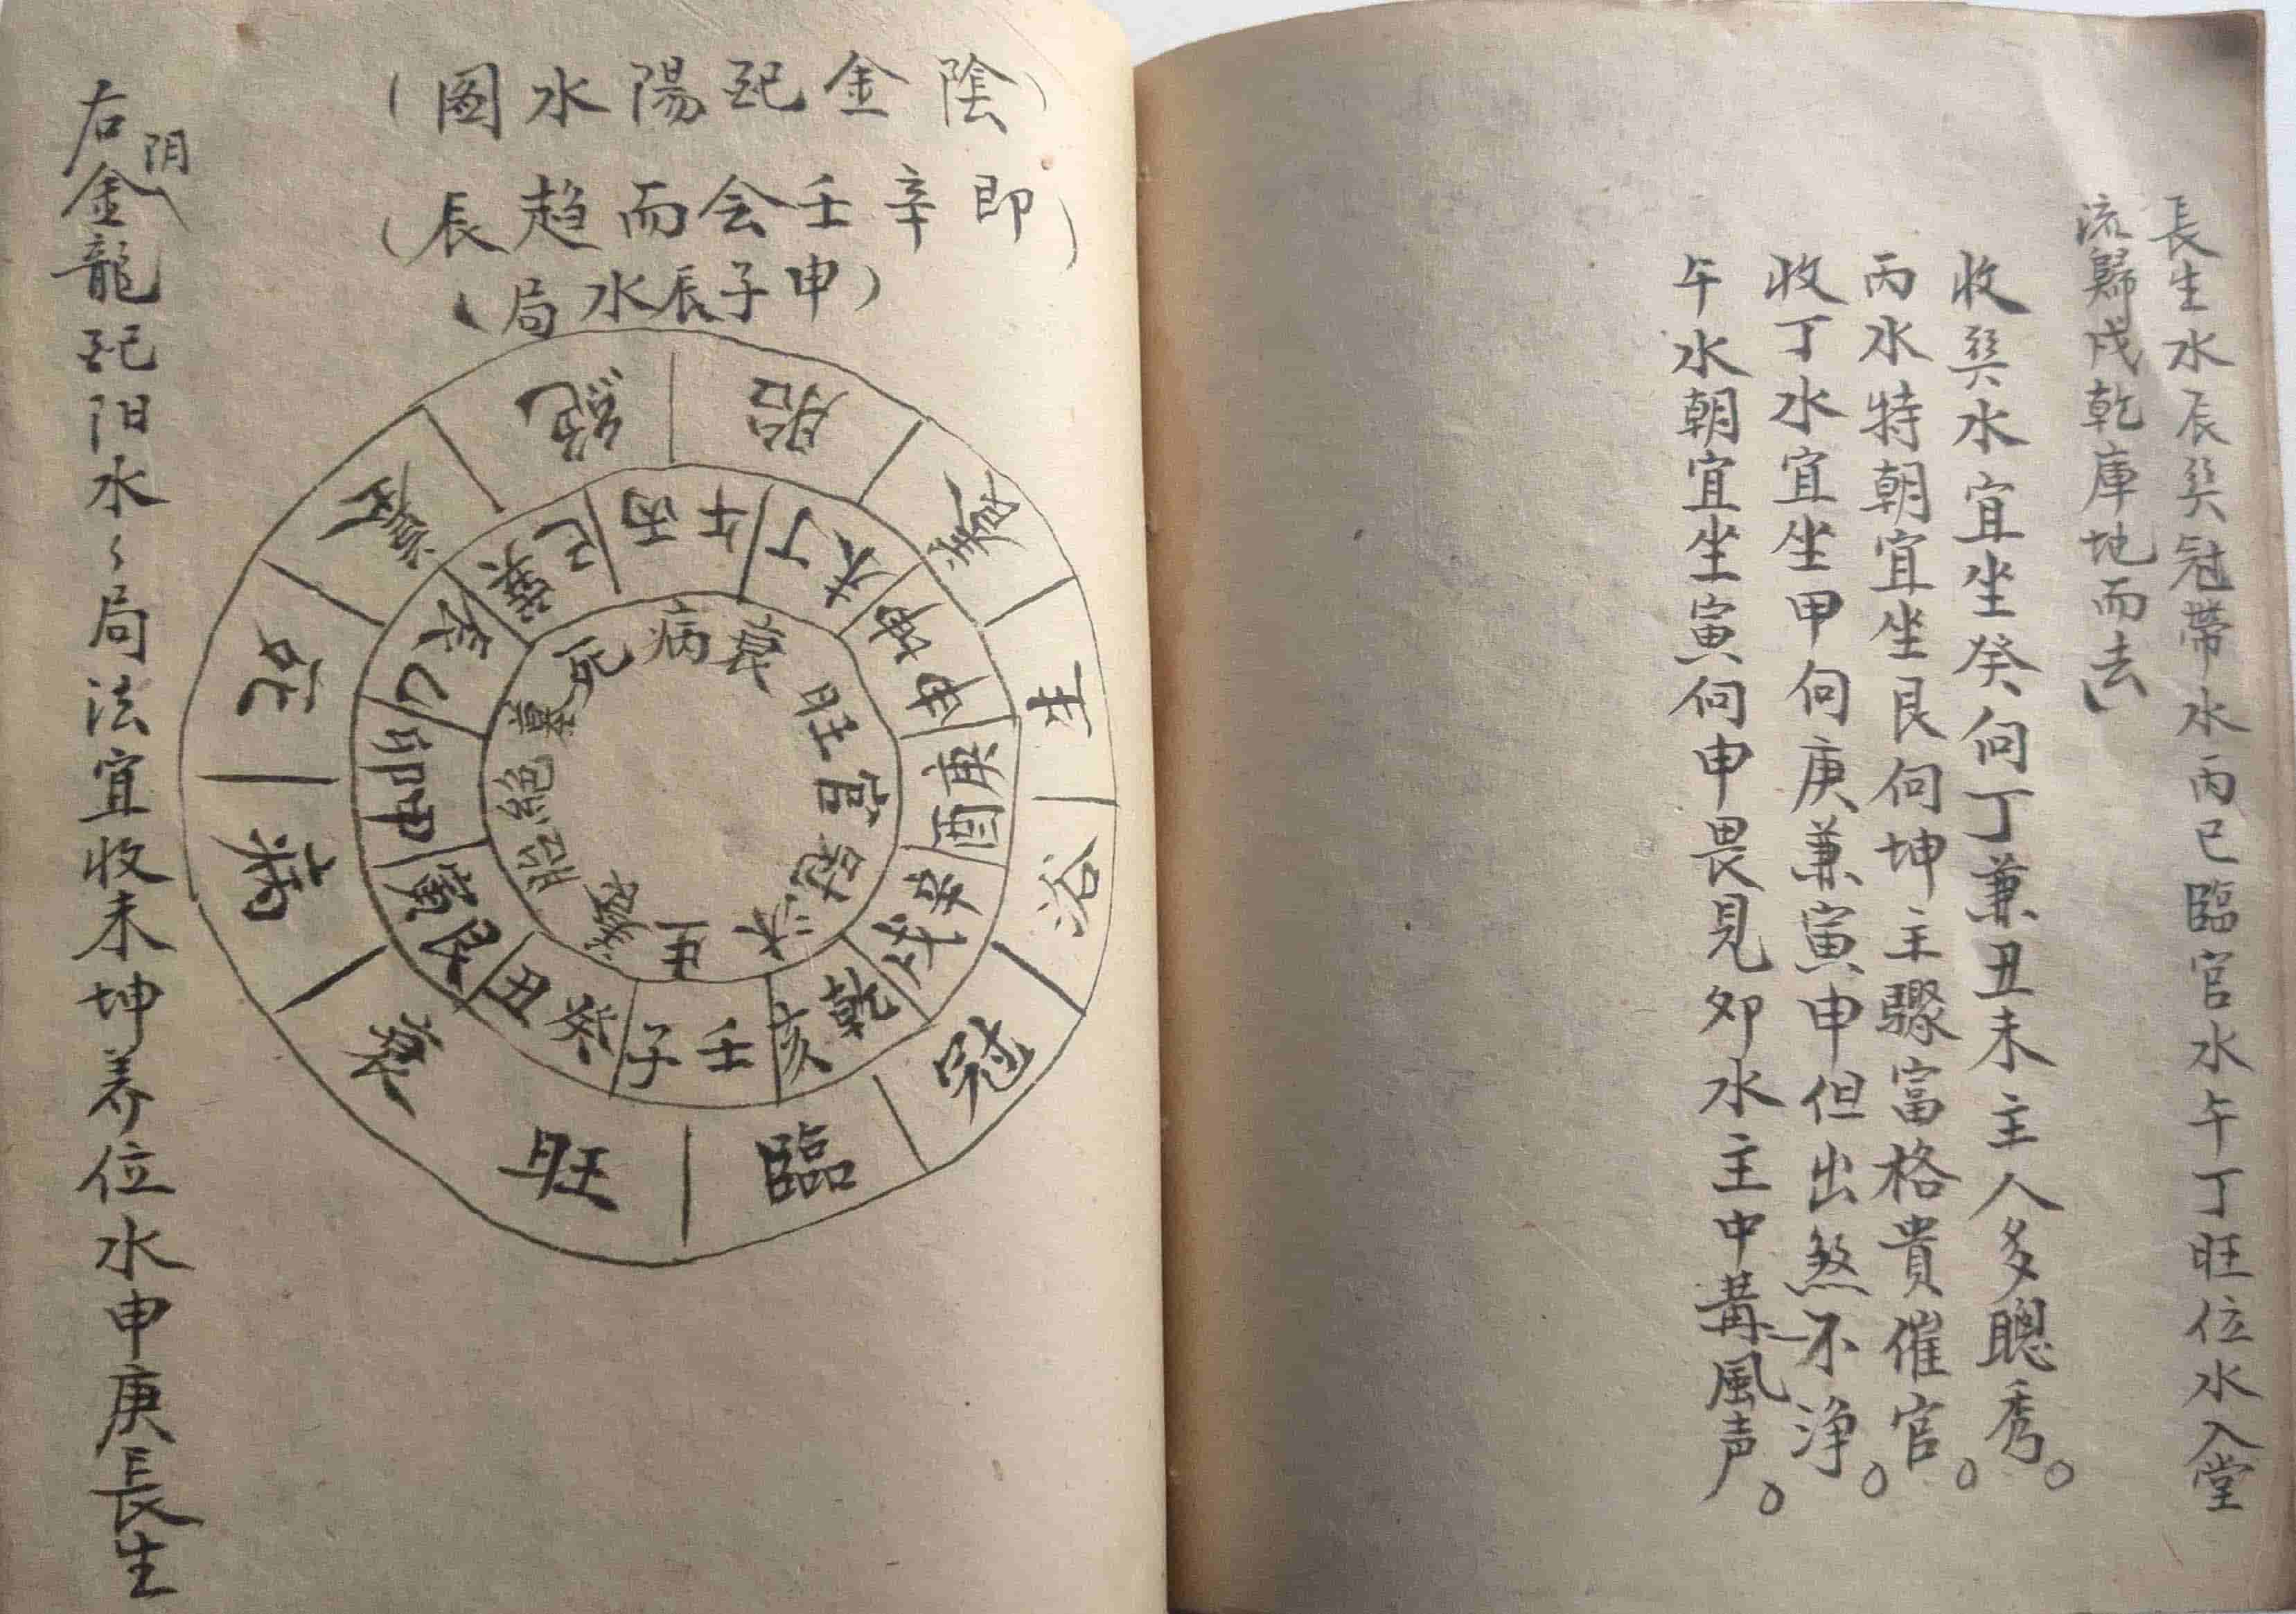 長生水辰巽冠帶水丙巳臨官水午丁旺位水入堂
流歸戌乾庫地而去
收巽水宜坐癸向丁兼丑未主人多聰秀。
丙水特朝宜坐艮向坤主驟富格貴催官。
收丁水宜坐甲向庚兼寅申但出煞不淨。
午水朝宜坐寅向申畏見卯水主中冓風声。
(陰金配陽水圖)
(即辛壬会而趋辰)
(申子辰水局)
胎
養
生
浴
冠
臨
旺
衰
病
死
墓
絕
丙午
丁未
坤申
庚酉
辛戌
乾亥
壬子
癸丑
艮寅
甲卯
乙辰
巽巳
病
衰
旺
官
冠
沐
生
養
胎
絕
墓
死
右阴金龍配阳水〻局法宜收未坤养位水申庚長生